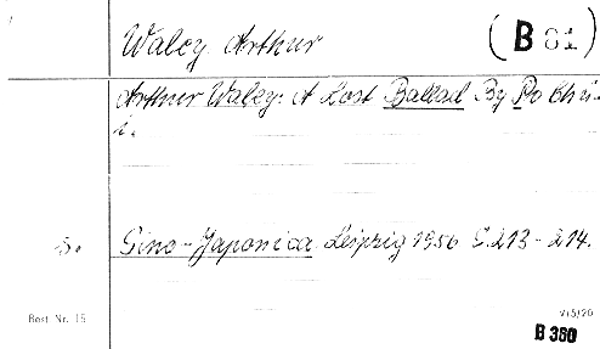 Waley Arthur
(B 81)
Arthur Waley: A Lost Ballad By Po Chü-
i.
S. Sino-Japonica Leipzig 1956 S.213-214.
Best Nr. 15
V/5/20
B 360